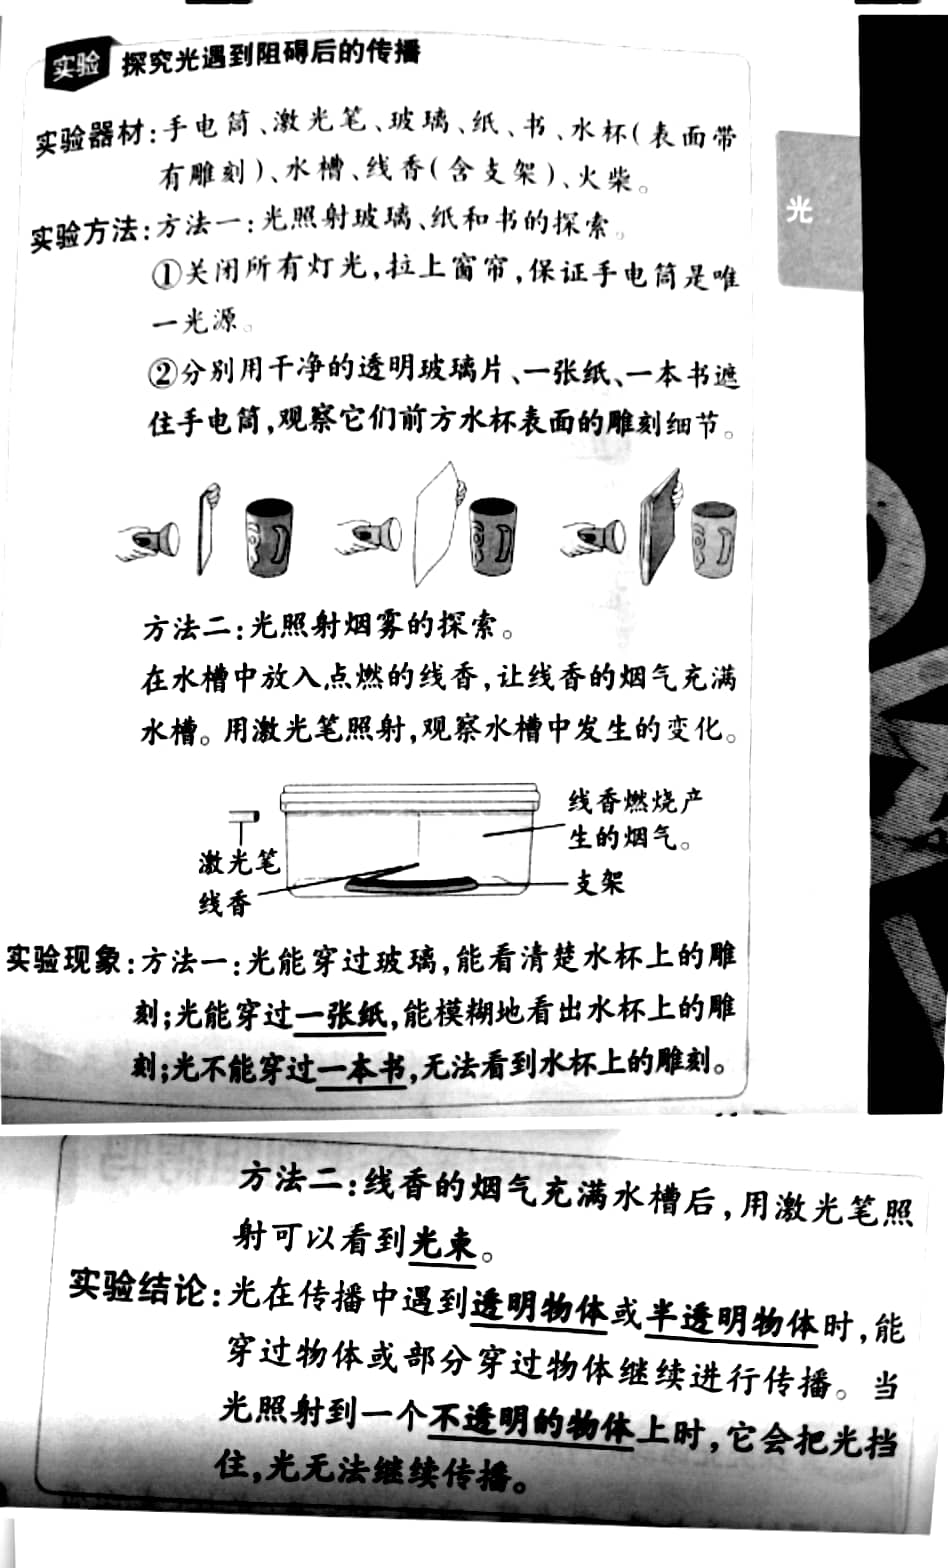 实验 探究光遇到阻碍后的传播
实验器材:手电筒、激光笔、玻璃、纸、书、水杯(表面带
有雕刻)、水槽、线香(含支架)、火柴。
光
实验方法:方法一:光照射玻璃、纸和书的探索。
①关闭所有灯光,拉上窗帘,保证手电筒是唯
一光源。
②分别用干净的透明玻璃片、一张纸、一本书遮
住手电筒,观察它们前方水杯表面的雕刻细节。
方法二:光照射烟雾的探索。
在水槽中放入点燃的线香,让线香的烟气充满
水槽。用激光笔照射,观察水槽中发生的变化。
线香燃烧产
生的烟气。
激光笔
支架
线香
实验现象:方法一:光能穿过玻璃,能看清楚水杯上的雕
刻;光能穿过一张纸,能模糊地看出水杯上的雕
刻;光不能穿过一本书,无法看到水杯上的雕刻。
方法二:线香的烟气充满水槽后,用激光笔照
射可以看到光束。
实验结论:光在传播中遇到透明物体或半透明物体时,能
穿过物体或部分穿过物体继续进行传播。当
光照射到一个不透明的物体上时,它会把光挡
住,光无法继续传播。